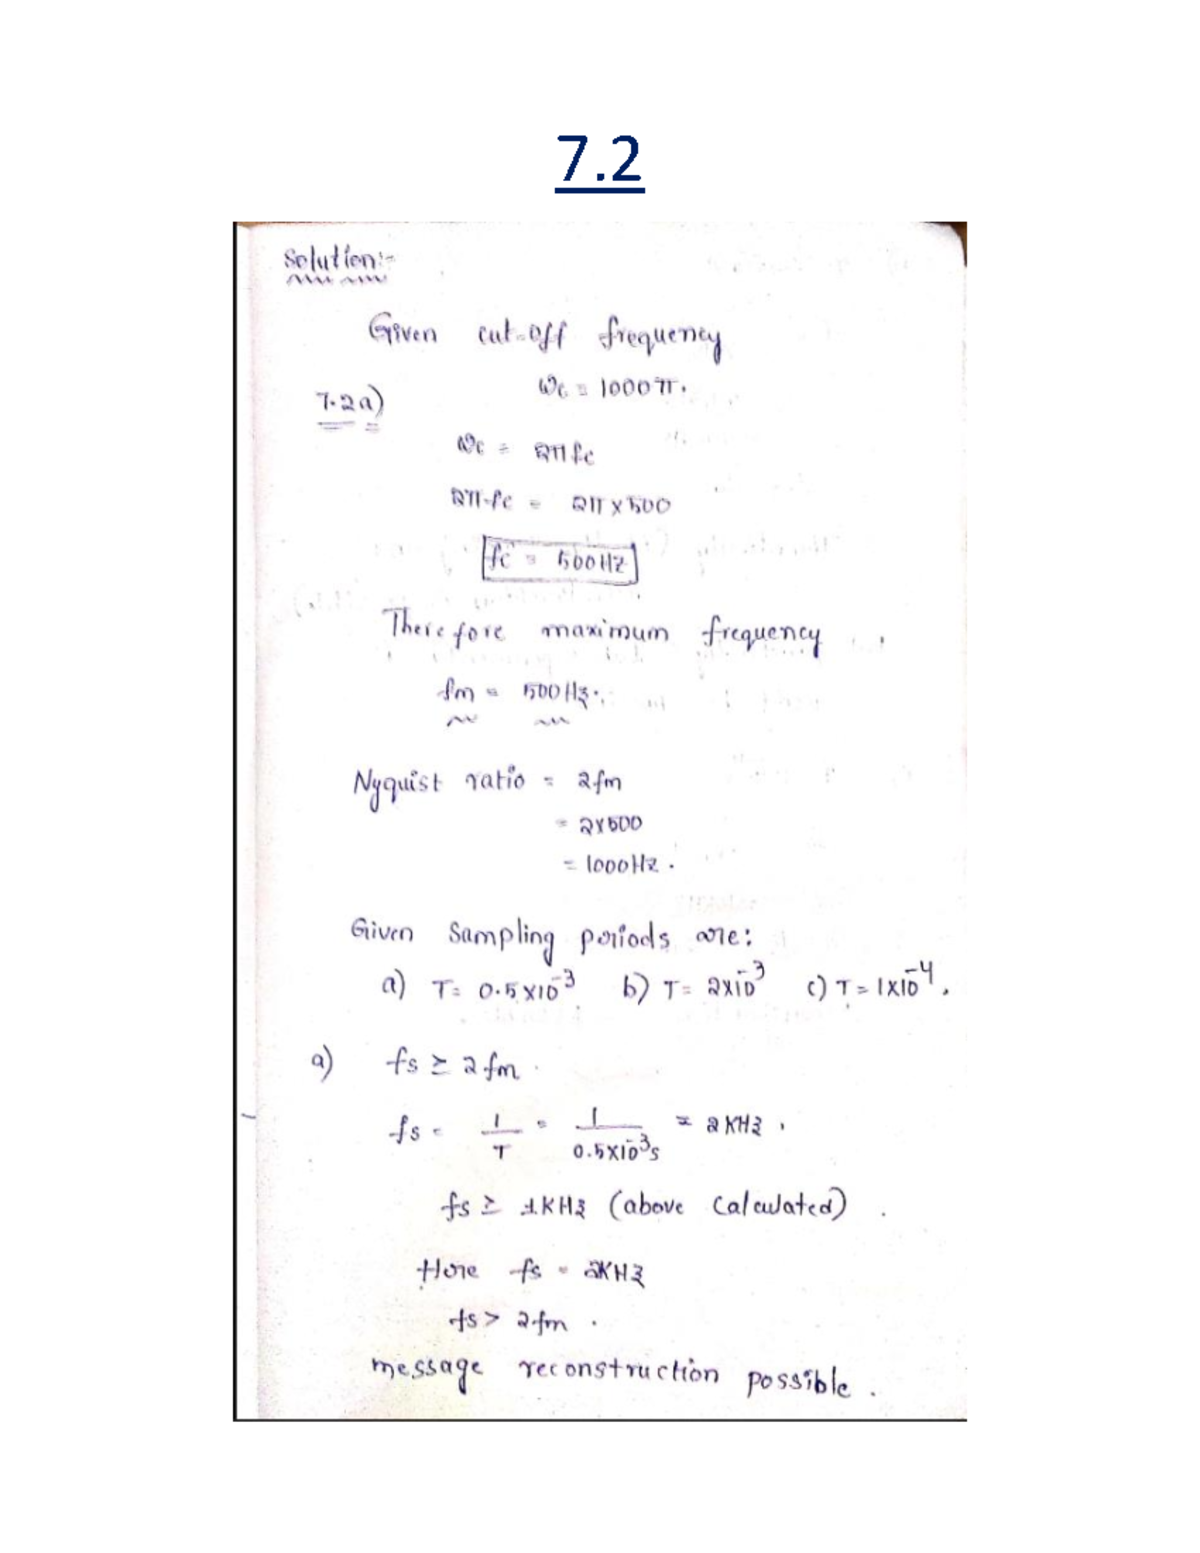 7.2
Solution:-
Given cut-off frequency
ωc = 1000π.
7.2a)
ωc = 2πfc
2πfc = 2π×500
fc = 500Hz
Therefore maximum frequency
fm = 500Hz.
Nyquist ratio = 2fm
= 2×500
= 1000Hz.
Given Sampling periods are:
a) T= 0.5×10⁻³ b) T= 2×10⁻³ c) T= 1×10⁻⁴.
a) fs ≥ 2fm.
fs = 1/T = 1/0.5×10⁻³s = 2KHz.
fs ≥ 1KHz (above Calculated).
Here fs = 2KHz
fs > 2fm.
message reconstruction possible.